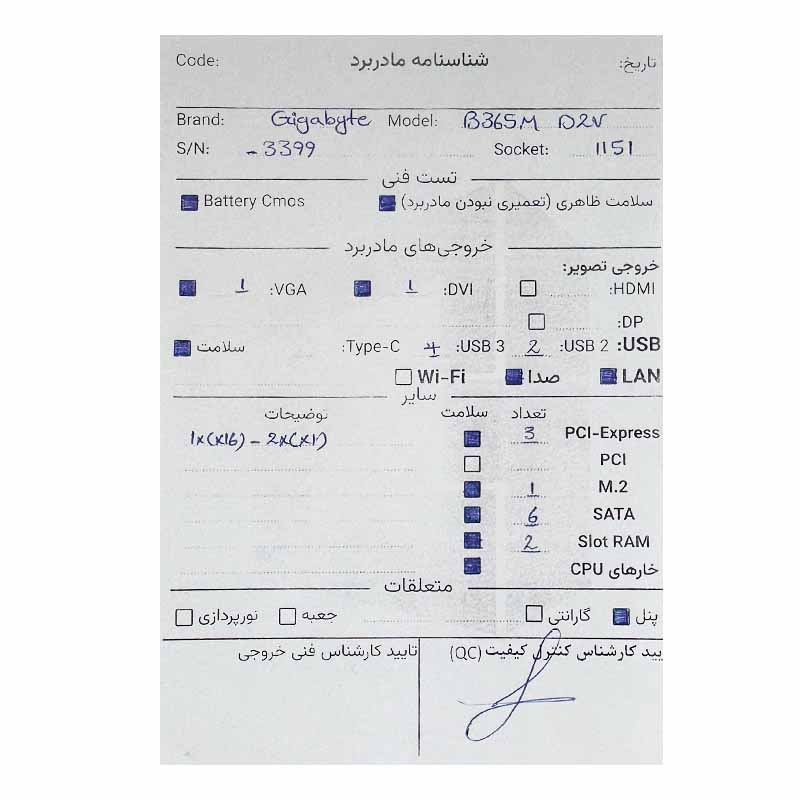 Code: شناسنامه مادربرد تاریخ:
Brand: Gigabyte Model: B365M D2V
S/N: -3399 Socket: 1151
تست فنی
سلامت ظاهری (تعمیری نبودن مادربرد) Battery Cmos
خروجی‌های مادربرد
خروجی تصویر:
HDMI: DVI: 1 VGA: 1
DP:
USB: USB 2: 2 USB 3: 4 Type-C: سلامت
LAN صدا Wi-Fi
سایر
تعداد سلامت توضیحات
PCI-Express 3 1x(x16) - 2x(x1)
PCI
M.2 1
SATA 6
Slot RAM 2
خارهای CPU
متعلقات
پنل گارانتی جعبه نورپردازی
یید کارشناس کنترل کیفیت (QC) تایید کارشناس فنی خروجی